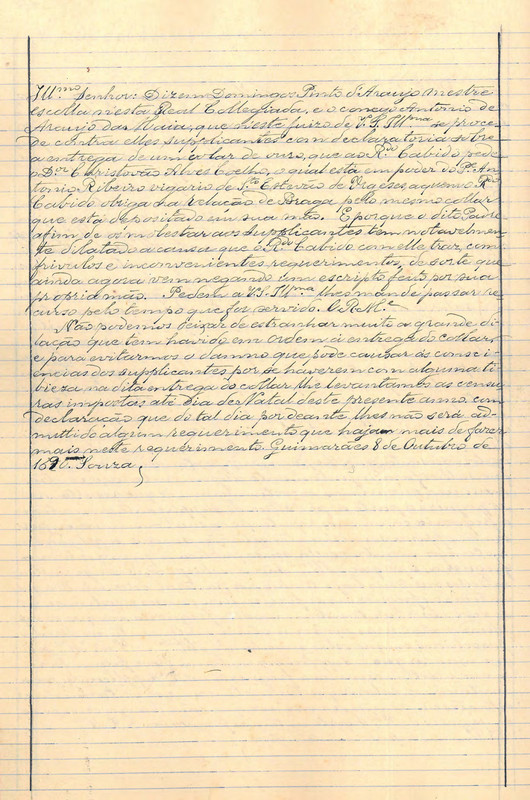 Ill.mo Senhor: Dizem Domingos Pinto d'Araujo mestre
escolla nesta Real Collegiada, e o conego Antonio de
Araujo da Maia, que neste juizo de V. S. Ill.ma se proce-
de contra elles supplicantes com declaratoria sobre
a entrega de um colar de ouro, que ao R.do Cabido pede
o D.or Christovão Alves Coelho, o qual está em poder do P.e An-
tonio Ribeiro vigario de S.to Estevão de Urgéses, a quem o R.do
Cabido obriga na relação de Braga pelo mesmo collar
que está depositado em sua mão. E porque o dito Padre
afim de os molestar aos supplicantes tem notavelmen-
te dilatado a causa que o R.do Cabido com elle traz, com
frivulos e inconvenientes requerimentos, de sorte que
ainda agora vem negando um escripto feito por sua
propria mão. Pedem a V. S. Ill.ma lhes mande passar re-
curso pelo tempo que for servido. O. R. M.
Não podemos deixar de estranhar muito a grande di-
lação que tem havido em ordem á entrega do collar,
e para evitarmos o damno que pode causar ás consci-
encias dos supplicantes por se haverem com alguma ti-
bieza na dita entrega do collar lhe levantamos as censu-
ras impostas até Dia de Natal deste presente anno, com
declaração que di tal dia por deante lhes não será ad-
mittido algum requerimento que hajam mais de fazer
mais neste requerimento. Guimarães 8 de Outubro de
1690. Souza;